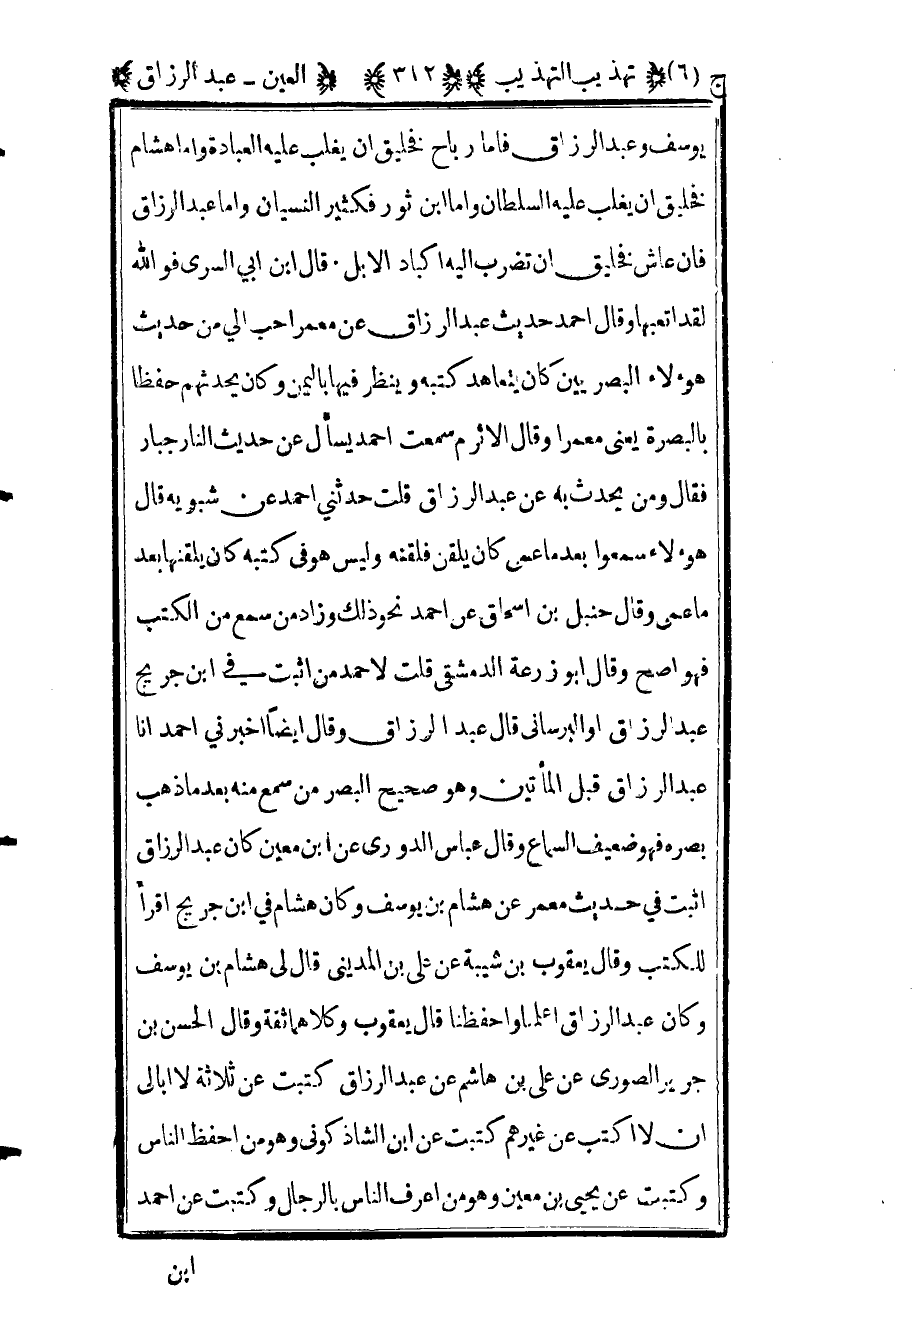 ج (٦) تهذيب التهذيب ٣١٢ العين - عبد الرزاق
يوسف وعبدالرزاق فاما رباح فخليق ان يغلب عليه العبادة واما هشام
فخليق ان يغلب عليه السلطان واما ابن ثور فكثير النسيان واما عبد الرزاق
فان عاش فخليق ان تضرب اليه اكباد الابل · قال ابن ابي السرى فو الله
لقد اتعبها وقال احمد حديث عبدالرزاق عن معمر احب الي من حديث
هوءلاء البصريين كان يتعاهد كتبه وينظر فيها باليمن وكان يحدثهم حفظا
بالبصرة يعنى معمرا وقال الاثرم سمعت احمد يسأل عن حديث النار جبار
فقال ومن يحدث به عن عبدالرزاق قلت حدثني احمد عن شبويه قال
هوءلاء سمعوا بعد ما عمى كان يلقن فلقنه وليس هو فى كتبه كان يلقنها بعد
ما عمى وقال حنبل بن اسحاق عن احمد نحو ذلك وزاد من سمع من الكتب
فهو اصح وقال ابو زرعة الدمشقى قلت لاحمد من اثبت في ابن جريج
عبدالرزاق او البرسانى قال عبد الرزاق وقال ايضاً اخبرني احمد انا
عبدالرزاق قبل المأتين وهو صحيح البصر من سمع منه بعد ما ذهب
بصره فهو ضعيف السماع وقال عباس الدورى عن ابن معين كان عبد الرزاق
اثبت في حديث معمر عن هشام بن يوسف وكان هشام في ابن جريج اقرأ
للكتب وقال يعقوب بن شيبة عن على بن المدينى قال لى هشام بن يوسف
وكان عبدالرزاق اعلمنا واحفظنا قال يعقوب وكلاهما ثقة وقال الحسن بن
جرير الصورى عن على بن هاشم عن عبد الرزاق كتبت عن ثلاثة لا ابالى
ان لا اكتب عن غيرهم كتبت عن ابن الشاذكونى وهو من احفظ الناس
وكتبت عن يحيى بن معين وهو من اعرف الناس بالرجال وكتبت عن احمد
ابن